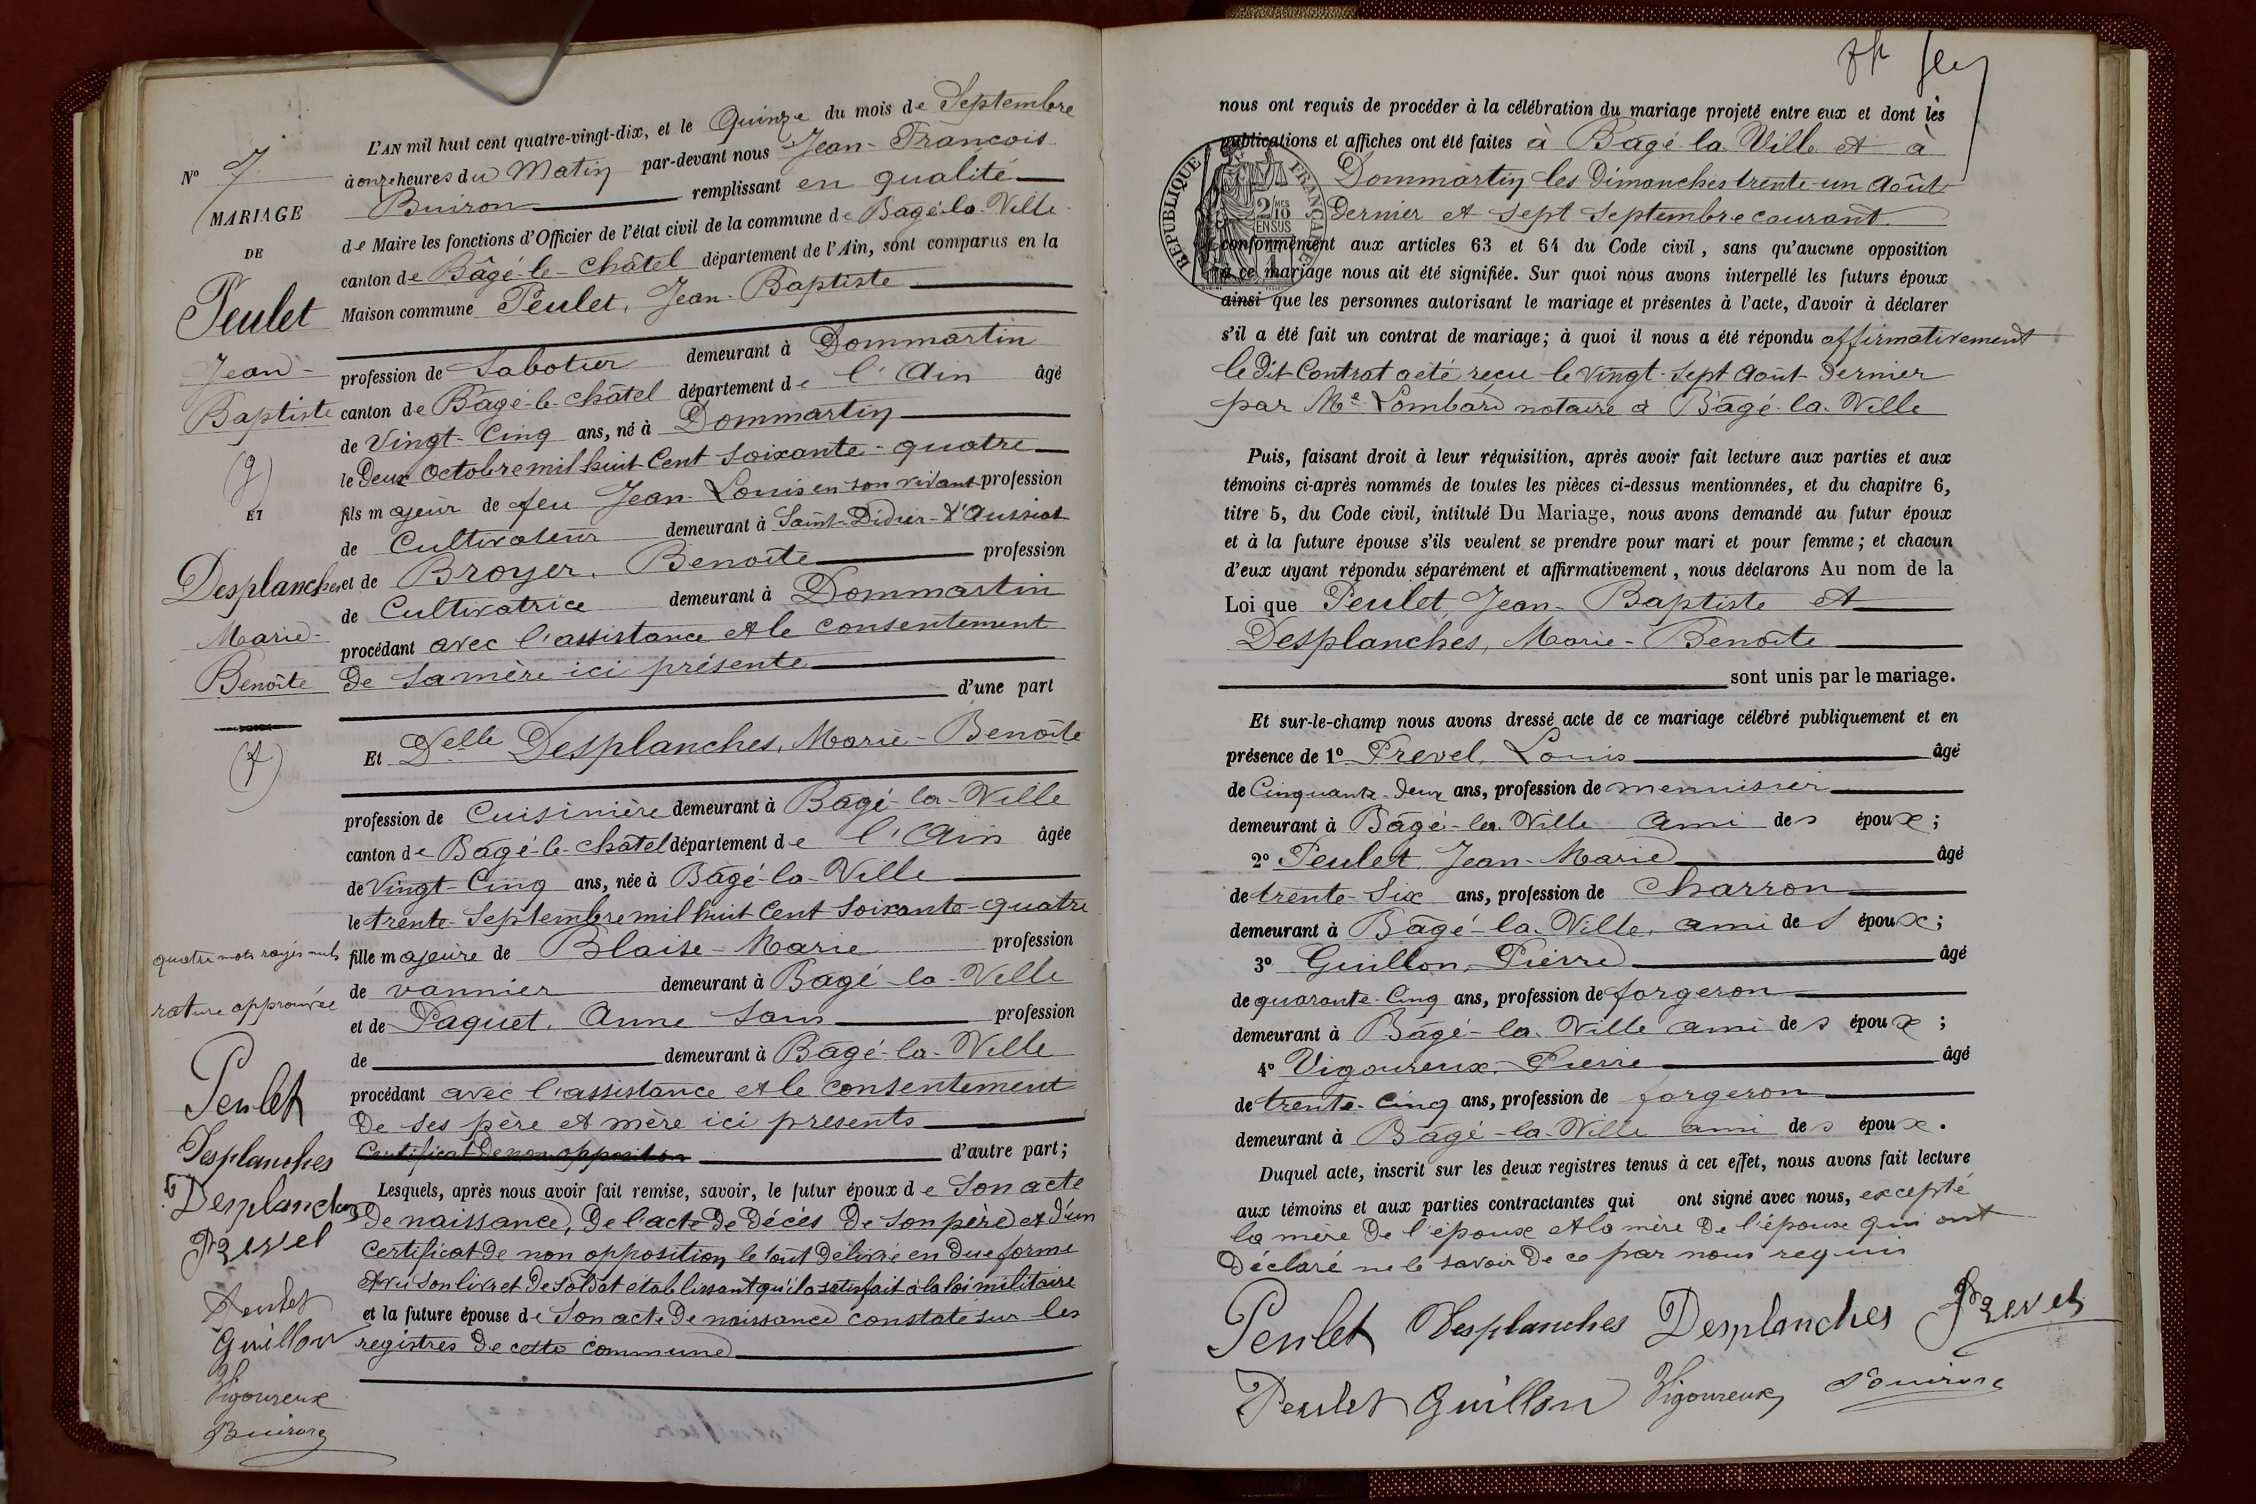 L'AN mil huit cent quatre-vingt-dix, et le Quinze du mois de Septembre
à onze heures du Matin par-devant nous Jean-François
Buiron remplissant en qualité
de Maire les fonctions d'Officier de l'état civil de la commune de Bagé-la-Ville
canton de Bâgé-le-Châtel département de l'Ain, sont comparus en la
Maison commune Peulet, Jean-Baptiste
profession de Sabotier demeurant à Dommartin
canton de Bâgé-le-Châtel département de l'Ain âgé
de Vingt-Cinq ans, né à Dommartin
le Deux Octobre mil huit Cent Soixante-quatre
fils majeur de feu Jean-Louis en son vivant profession
de Cultivateur demeurant à Saint-Didier-d'Aussiat
et de Broyer, Benoîte profession
de Cultivatrice demeurant à Dommartin
procédant avec l'assistance et le consentement
De sa mère ici présente
d'une part
Et Delle Desplanches, Marie-Benoîte
profession de Cuisinière demeurant à Bâgé-la-Ville
canton de Bâgé-le-Châtel département de l'Ain âgée
de Vingt-Cinq ans, née à Bâgé-la-Ville
le trente Septembre mil huit Cent Soixante-quatre
fille majeure de Blaise-Marie profession
de vannier demeurant à Bagé-la-Ville
et de Paquet, Anne Sans profession
de demeurant à Bâgé-la-Ville
procédant avec l'assistance et le consentement
De ses père et mère ici présents
Certificat De non opposition d'autre part;
Lesquels, après nous avoir fait remise, savoir, le futur époux de Son acte
De naissance, De l'acte De Décès De son père et d'un
Certificat De non opposition le tout Délivré en Due forme
et vu son livret De soldat établissant qu'il a satisfait à la loi militaire
et la future épouse de Son acte De naissance constaté sur les
registres De cette Commune
N° 7
MARIAGE
DE
Peulet
Jean-
Baptiste
ET
Desplanches
Marie-
Benoîte
quatre mots rayés nuls
rature approuvée
Peulet
Desplanches
Desplanches
Prevel
Peulet
Guillon
Vigoureux
Buiron
nous ont requis de procéder à la célébration du mariage projeté entre eux et dont les
publications et affiches ont été faites à Bâgé-la-Ville et à
Dommartin les Dimanches trente-un Août
Dernier et Sept Septembre courant
conformément aux articles 63 et 64 du Code civil, sans qu'aucune opposition
à ce mariage nous ait été signifiée. Sur quoi nous avons interpellé les futurs époux
ainsi que les personnes autorisant le mariage et présentes à l'acte, d'avoir à déclarer
s'il a été fait un contrat de mariage; à quoi il nous a été répondu affirmativement
le dit Contrat a été reçu le vingt-Sept Août Dernier
par Me Lombard notaire à Bâgé-la-Ville
Puis, faisant droit à leur réquisition, après avoir fait lecture aux parties et aux
témoins ci-après nommés de toutes les pièces ci-dessus mentionnées, et du chapitre 6,
titre 5, du Code civil, intitulé Du Mariage, nous avons demandé au futur époux
et à la future épouse s'ils veulent se prendre pour mari et pour femme; et chacun
d'eux ayant répondu séparément et affirmativement, nous déclarons Au nom de la
Loi que Peulet, Jean-Baptiste et
Desplanches, Marie-Benoîte
sont unis par le mariage.
Et sur-le-champ nous avons dressé acte de ce mariage célébré publiquement et en
présence de 1° Prevel, Louis âgé
de Cinquante-Deux ans, profession de menuisier
demeurant à Bâgé-la-Ville ami des époux;
2° Peulet, Jean-Marie âgé
de trente-Six ans, profession de Charron
demeurant à Bâgé-la-Ville, ami des époux;
3° Guillon, Pierre âgé
de quarante-Cinq ans, profession de forgeron
demeurant à Bâgé-la-Ville ami des époux;
4° Vigoureux, Pierre âgé
de trente-Cinq ans, profession de forgeron
demeurant à Bâgé-la-Ville ami des époux.
Duquel acte, inscrit sur les deux registres tenus à cet effet, nous avons fait lecture
aux témoins et aux parties contractantes qui ont signé avec nous, excepté
la mère De l'époux et la mère De l'épouse qui ont
Déclaré ne le savoir De ce par nous requis
Peulet Desplanches Desplanches Prevel
Peulet Guillon Vigoureux Buiron
RÉPUBLIQUE FRANÇAISE
2 MES 10 EN SUS